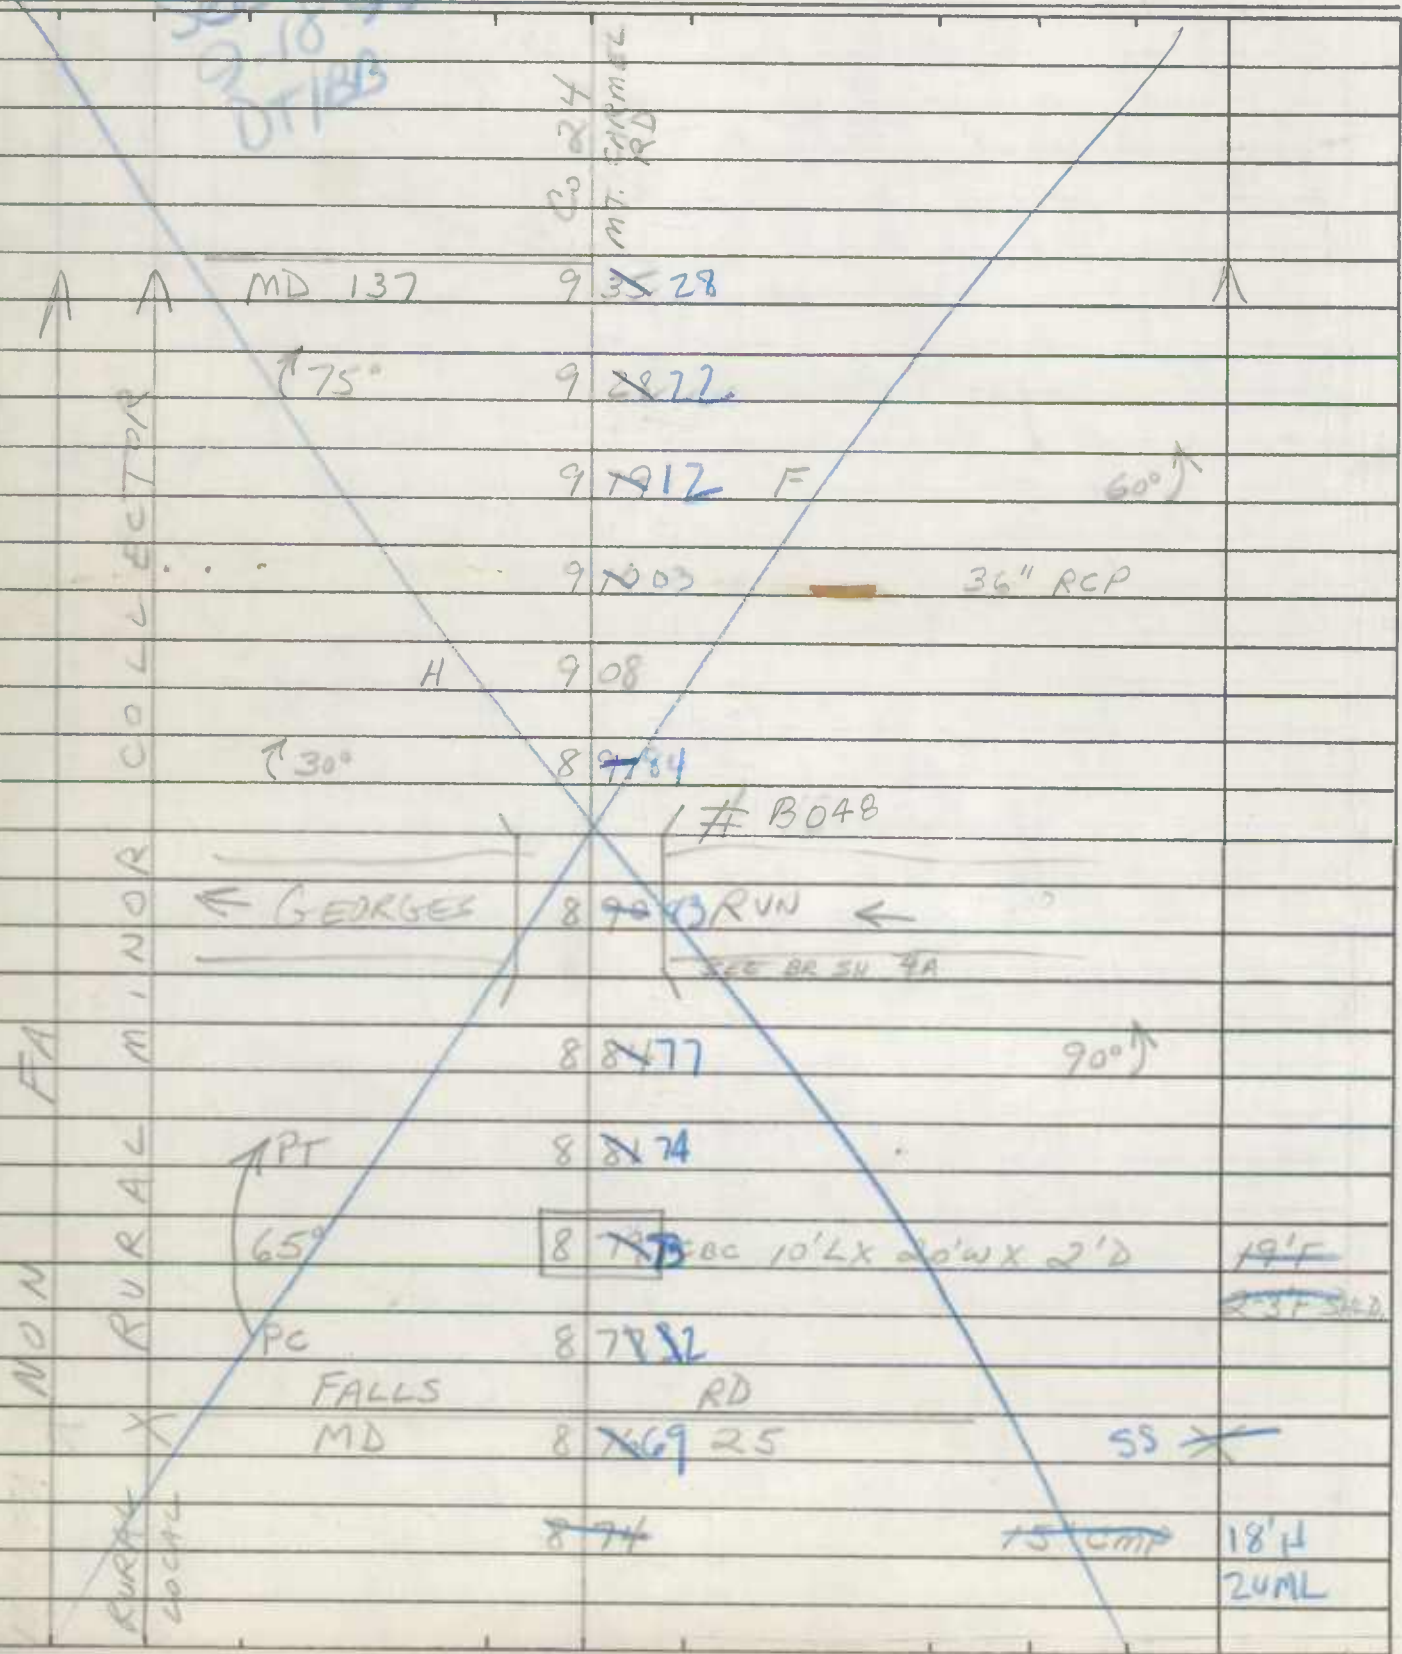 DT/BB
CO 24
MT. CARMEL
RD
MD 137 9 35 28
75° 9 28 22
9 19 12 F 60°
9 10 03 36" RCP
H 9 08
30° 8 97 84
# B048
← GEORGES 8 90 83 RUN ←
SEE BR SH 9A
8 84 77 90°
PT 8 81 74
65° 8 79 73 CBC 10'L X 20'W X 2'D 19'F
2-3'F SHLD.
PC 8 78 82
FALLS RD
MD 8 76 69 25 SS X
8 74 15" CMP 18'H
2UML
NON FA
X RURAL MINOR COLLECTOR
RURAL
LOCAL